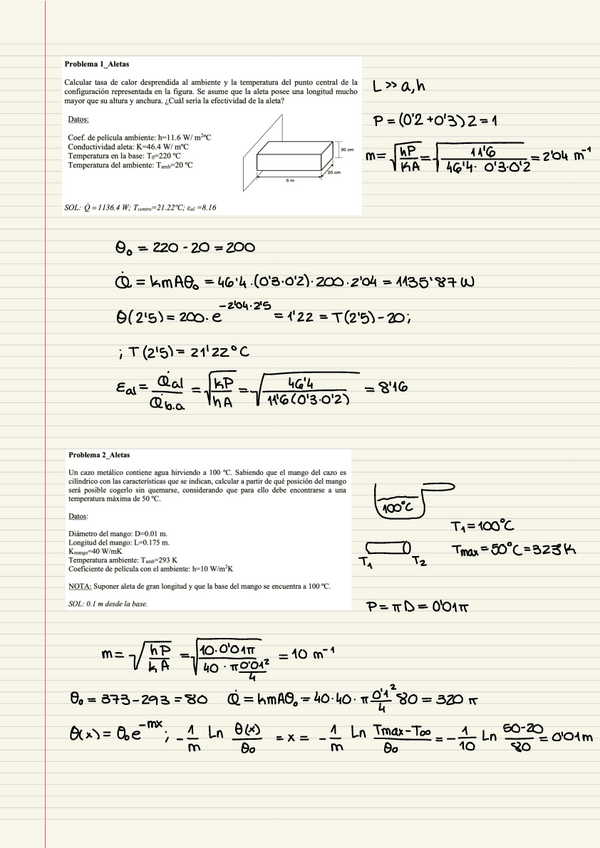 Problema 1_Aletas
Calcular tasa de calor desprendida al ambiente y la temperatura del punto central de la
configuración representada en la figura. Se asume que la aleta posee una longitud mucho
mayor que su altura y anchura. ¿Cuál sería la efectividad de la aleta?
Datos:
Coef. de película ambiente: h=11.6 W/ m²ºC
Conductividad aleta: K=46.4 W/ mºC
Temperatura en la base: T₀=220 ºC
Temperatura del ambiente: Tamb=20 ºC
30 cm
20 cm
5 m
SOL: Q̇ = 1136.4 W; Tcentro=21.22ºC; εal =8.16
L >> a,h
P = (0'2 + 0'3) 2 = 1
m = √(hP/KA) = √(11'6/(46'4 · 0'3·0'2)) = 2'04 m⁻¹
θ₀ = 220 - 20 = 200
Q̇ = kmAθ₀ = 46'4·(0'3·0'2)·200·2'04 = 1135'87 W
θ(2'5) = 200·e^(-2'04·2'5) = 1'22 = T(2'5) - 20;
; T(2'5) = 21'22°C
εal = Q̇al/Q̇b.a = √(kP/hA) = √(46'4/(11'6(0'3·0'2))) = 8'16
Problema 2_Aletas
Un cazo metálico contiene agua hirviendo a 100 ºC. Sabiendo que el mango del cazo es
cilíndrico con las características que se indican, calcular a partir de qué posición del mango
será posible cogerlo sin quemarse, considerando que para ello debe encontrarse a una
temperatura máxima de 50 ºC.
Datos:
Diámetro del mango: D=0.01 m.
Longitud del mango: L=0.175 m.
Kmango=40 W/mK
Temperatura ambiente: Tamb=293 K
Coeficiente de película con el ambiente: h=10 W/m²K
NOTA: Suponer aleta de gran longitud y que la base del mango se encuentra a 100 ºC.
SOL: 0.1 m desde la base.
100°C
T₁ = 100°C
T₁ T₂
Tmax = 50°C = 323 K
P = πD = 0'01π
m = √(hP/kA) = √(10·0'01π/(40 · π 0'01²/4)) = 10 m⁻¹
θ₀ = 373 - 293 = 80 Q̇ = kmAθ₀ = 40·40·π 0'1²/4 80 = 320 π
θ(x) = θ₀e^(-mx); -1/m Ln θ(x)/θ₀ = x = -1/m Ln (Tmax - T∞)/θ₀ = -1/10 Ln (50-20)/80 = 0'01m